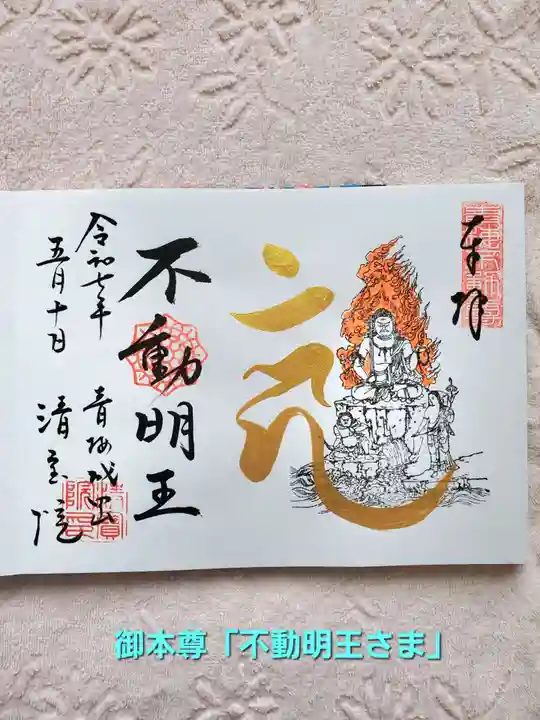 奉拝
不動明王
令和七年
五月十日
青梅
清宝院
御本尊「不動明王さま」